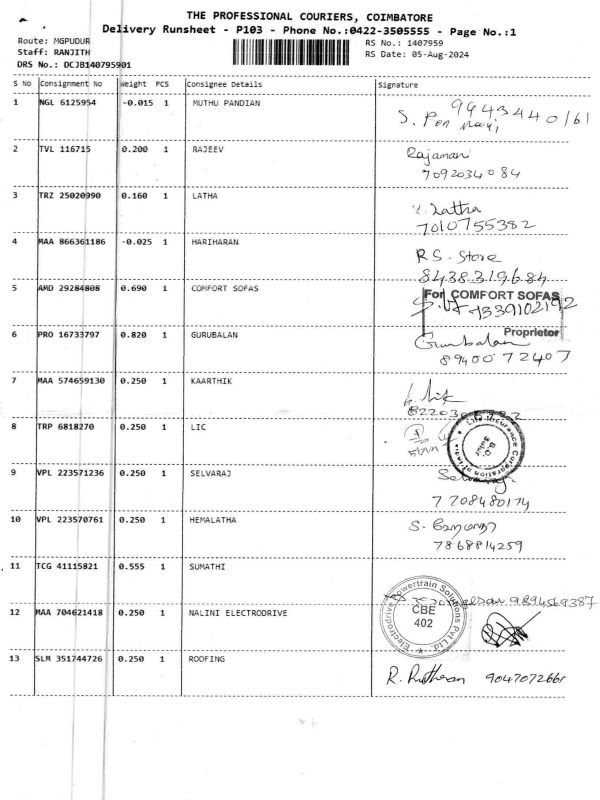 THE PROFESSIONAL COURIERS, COIMBATORE
Delivery Runsheet - P103 - Phone No.:0422-3505555 - Page No.:1
Route: MGPUDUR RS No.: 1407959
Staff: RANJITH RS Date: 05-Aug-2024
DRS No.: DCJB140795901
S No Consignment No Weight PCS Consignee Details Signature
1 NGL 6125954 -0.015 1 MUTHU PANDIAN S. 9943440161
2 TVL 116715 0.200 1 RAJEEV Rajamani
7092034084
3 TRZ 25020990 0.160 1 LATHA Latha
7010755382
4 MAA 866361186 -0.025 1 HARIHARAN RS. Store
8438319684
5 AMD 29284808 0.690 1 COMFORT SOFAS For COMFORT SOFAS
Proprietor
6 PRO 16733797 0.820 1 GURUBALAN Gurubalan
8940072407
7 MAA 574659130 0.250 1 KAARTHIK
8 TRP 6818270 0.250 1 LIC Life Insurance Corporation of India
B.O.
Sulur
9 VPL 223571236 0.250 1 SELVARAJ
7708480174
10 VPL 223570761 0.250 1 HEMALATHA S.
7868814259
11 TCG 41115821 0.555 1 SUMATHI
9894569387
12 MAA 704621418 0.250 1 NALINI ELECTRODRIVE Electrodrive Powertrain Solutions Pvt Ltd
CBE
402
13 SLM 351744726 0.250 1 ROOFING R. 9047072661